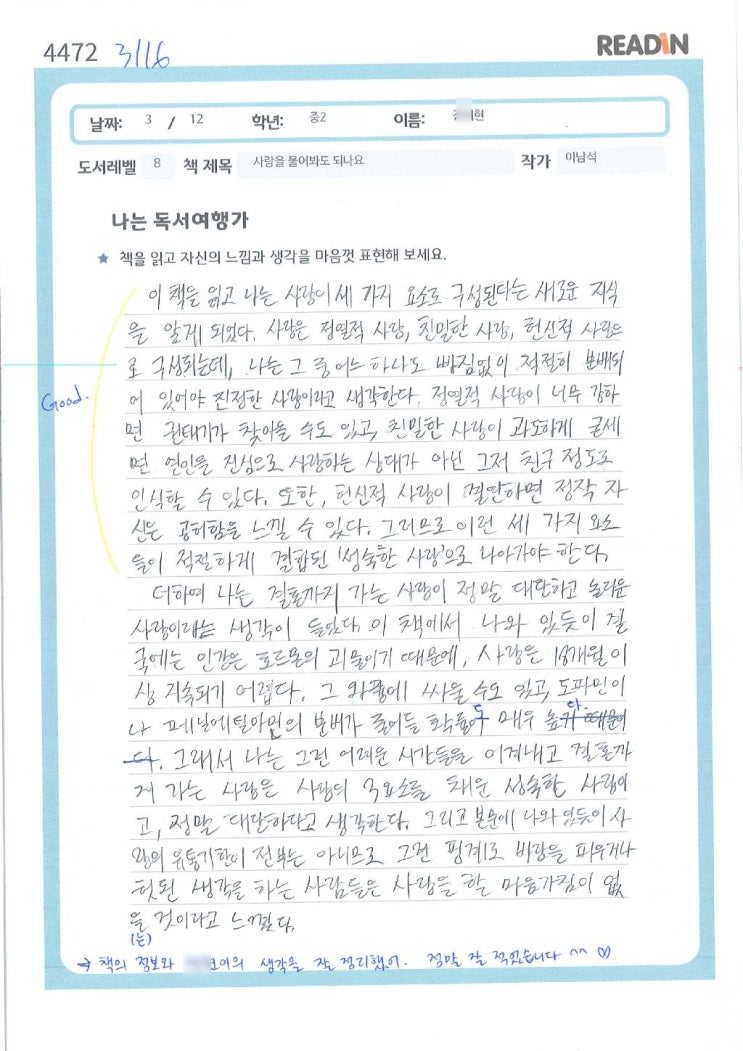 4472 3/16 READIN
날짜: 3 / 12 학년: 중2 이름: 현
도서레벨 8 책 제목 사랑을 물어봐도 되나요 작가 이남석
나는 독서여행가
★ 책을 읽고 자신의 느낌과 생각을 마음껏 표현해 보세요.
이 책을 읽고 나는 사랑이 세 가지 요소로 구성된다는 새로운 지식
을 알게 되었다. 사랑은 정열적 사랑, 친밀한 사랑, 헌신적 사랑으
로 구성되는데, 나는 그 중 어느 하나도 빠짐없이 적절히 분배되
Good.
어 있어야 진정한 사랑이라고 생각한다. 정열적 사랑이 너무 강하
면 권태기가 찾아올 수도 있고, 친밀한 사랑이 과도하게 굳세
면 연인을 진심으로 사랑하는 상대가 아닌 그저 친구 정도로
인식할 수 있다. 또한, 헌신적 사랑이 결말하면 정작 자
신은 공허함을 느낄 수 있다. 그러므로 이런 세 가지 요소
들이 적절하게 결합된 '성숙한 사랑'으로 나아가야 한다.
더하여 나는 결혼까지 가는 사랑이 정말 대단하고 놀라운
사랑이라는 생각이 들었다. 이 책에서 나와 있듯이 결
국에는 인간은 호르몬의 괴물이기 때문에, 사랑은 18개월 이
상 지속되기 어렵다. 그 와중에 싸울 수도 있고, 도파민이
나 페닐에틸아민의 분비가 줄어들 확률이 매우 높다.
그래서 나는 그런 어려운 시간들을 이겨내고 결혼까
지 가는 사랑은 사랑의 3요소를 채운 성숙한 사랑이
고, 정말 대단하다고 생각한다. 그리고 본문에 나와 있듯이 사
랑의 유통기한이 전부는 아니므로 그런 핑계로 바람을 피우거나
헛된 생각을 하는 사람들은 사랑을 할 마음가짐이 없
을 것이라고 느꼈다.
(는)
→ 책의 정보와 이의 생각을 잘 정리했어. 정말 잘 적었습니다 ^^ ♡